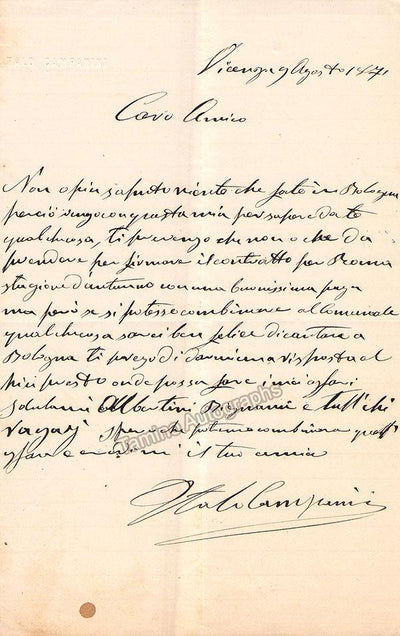 ITALO CAMPANINI
Vicenza 9 Agosto 1871
Caro Amico
Non o piu saputo niente che fate in Bologna
perciò vengo con questa mia per sapere da te
qualchosa, ti prevengo che non o che da
prendere per firmare il contratto per Roma
stagione d'autunno con una buonissima paga
ma però se si potesse combinare al Comunale
qualchosa sarei ben felice di cantare a
Bologna ti prego di darmi una risposta al
più presto onde possa fare i miei affari
salutami Albertini e tutti chi
Tamino Autographs
spero che si potremo combinare quest
affare e il tuo amico
Italo Campanini